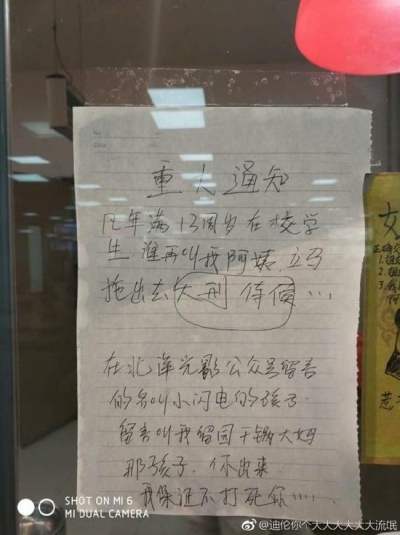 重大通知
凡年满13周岁在校学
生 谁再叫我阿姨,立马
拖出去大刑 伺候…
在北洋光 公众号留言
的名叫小闪电的孩子.
留言叫我留园干锅大妈
那孩子.你出来
我保证不打死你……
女
1.
2.
3.
惹
SHOT ON MI 6
MI DUAL CAMERA
@迪伦你个大大大大大大大流氓